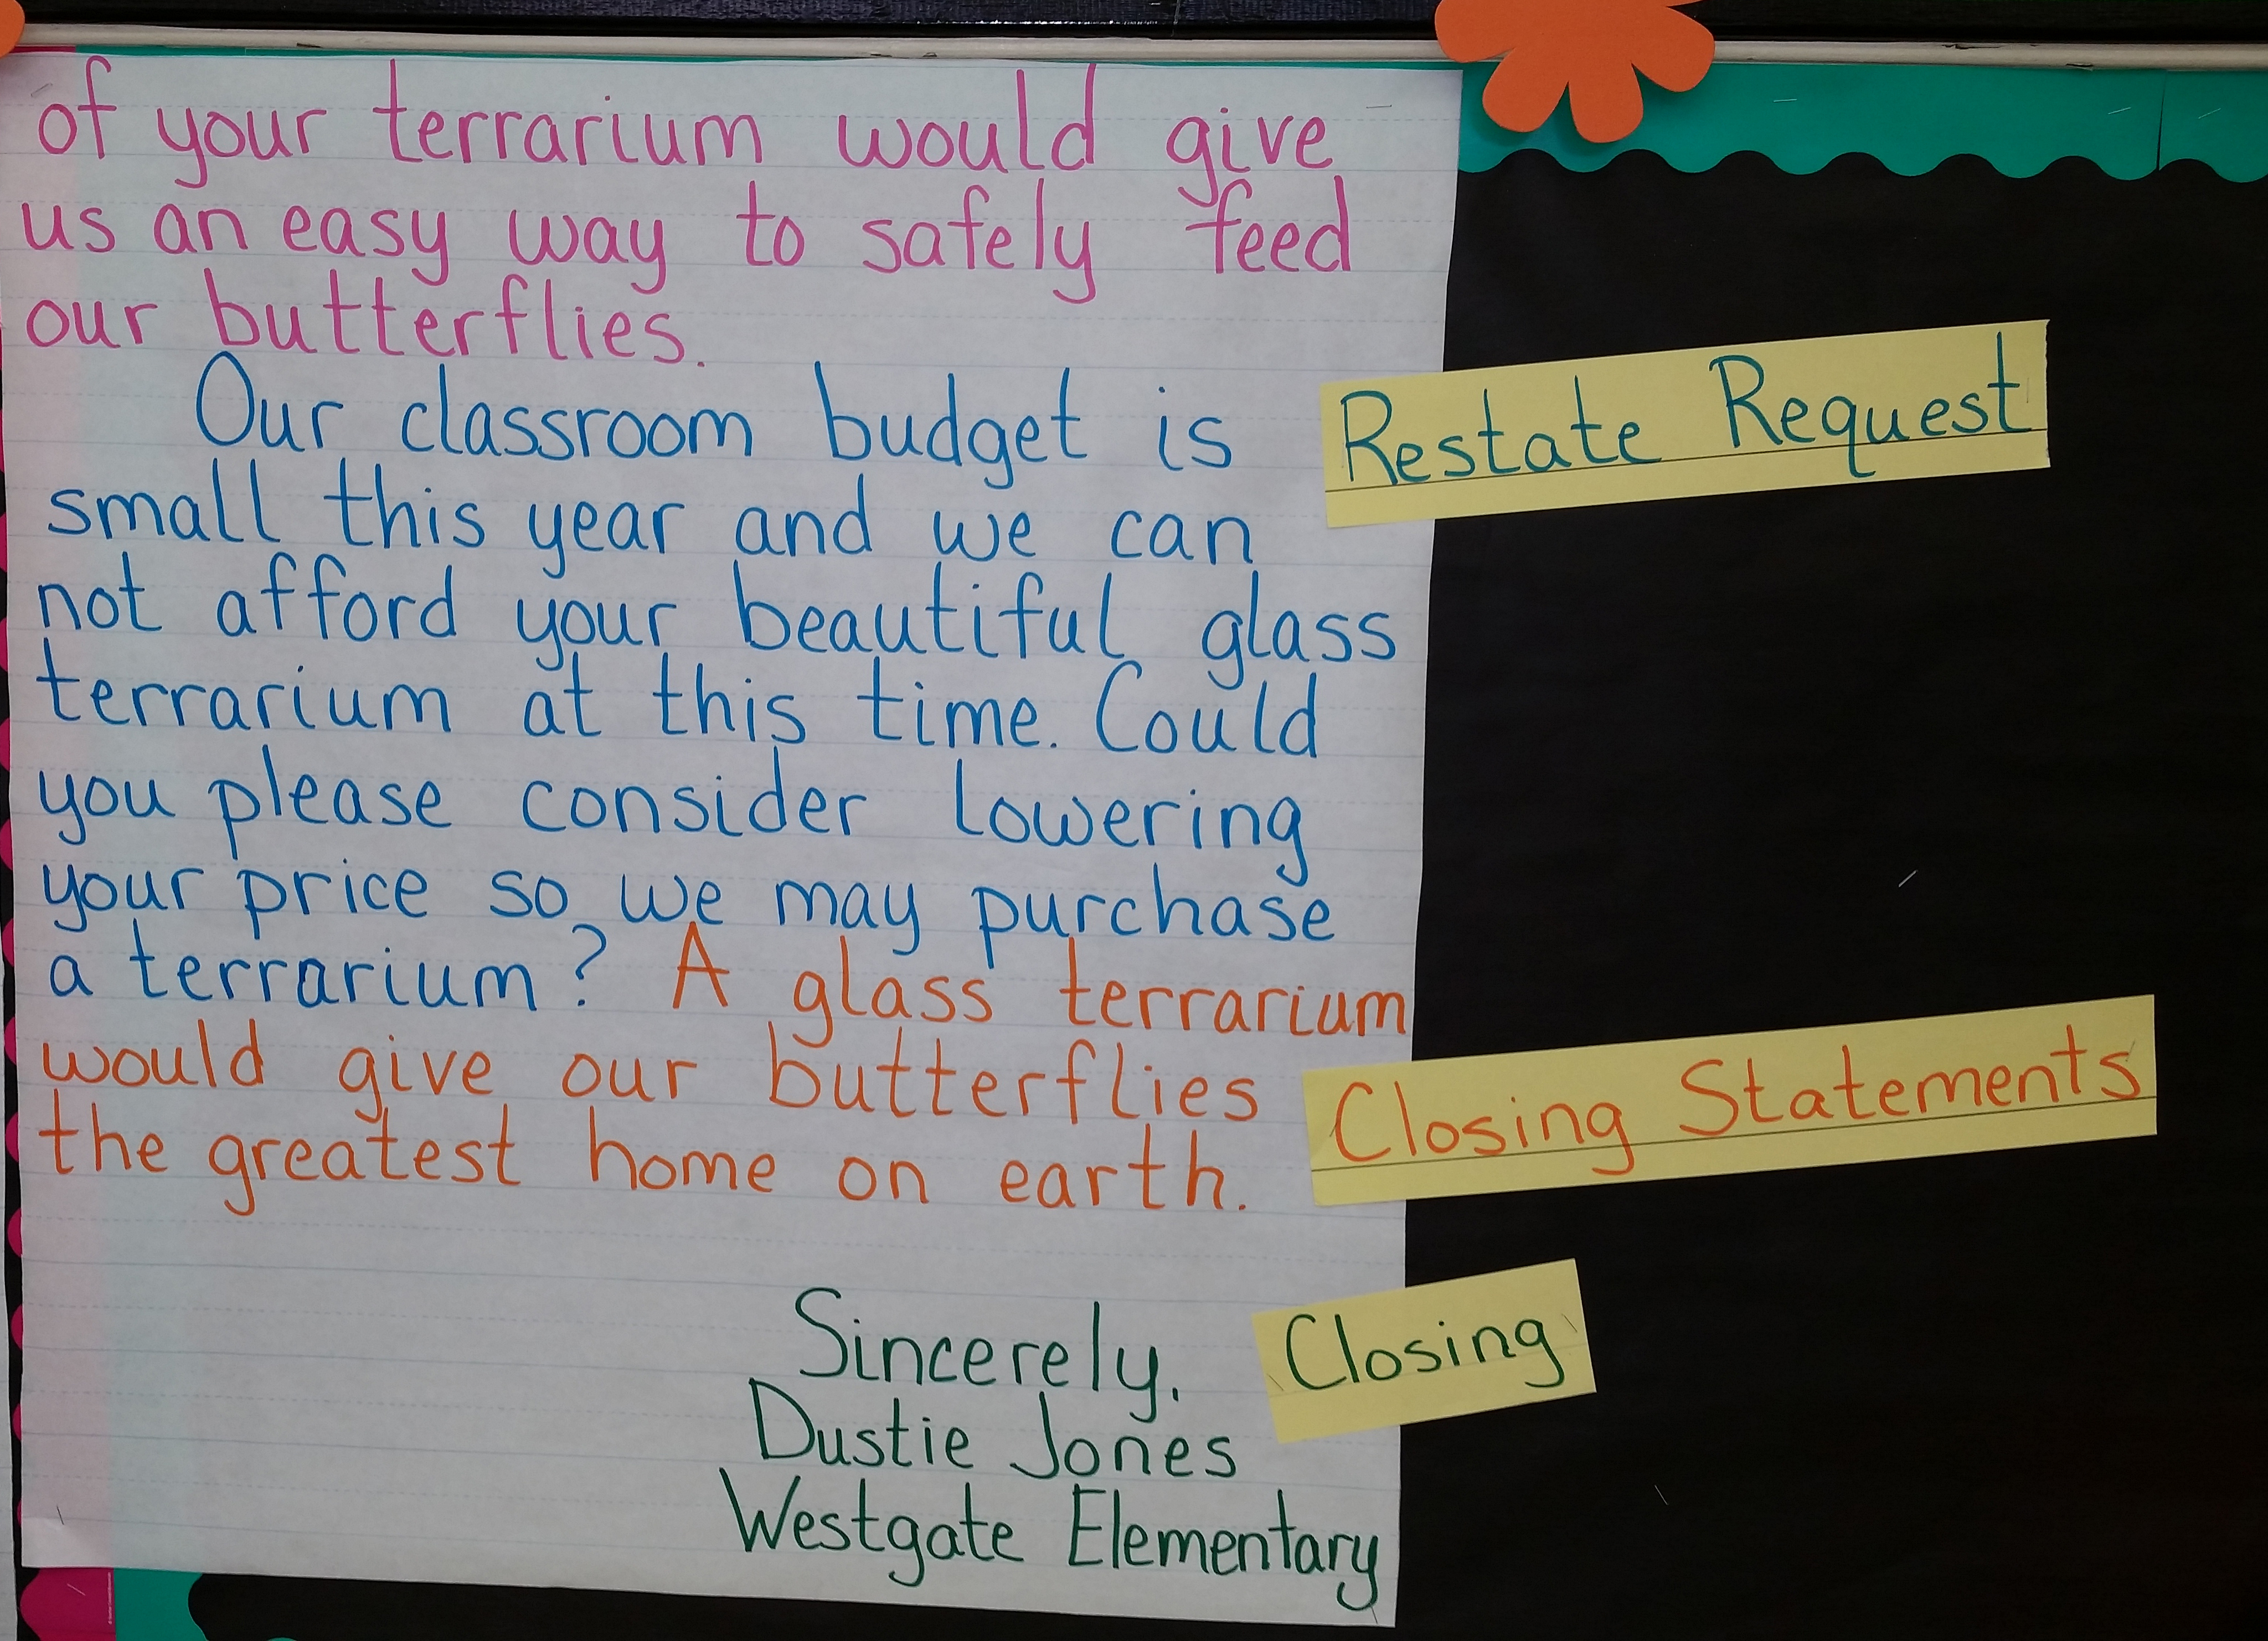 of your terrarium would give
us an easy way to safely feed
our butterflies.
Our classroom budget is
small this year and we can
not afford your beautiful glass
terrarium at this time. Could
you please consider lowering
your price so we may purchase
a terrarium? A glass terrarium
would give our butterflies
the greatest home on earth.
Sincerely,
Dustie Jones
Westgate Elementary
Restate Request
Closing Statements
Closing